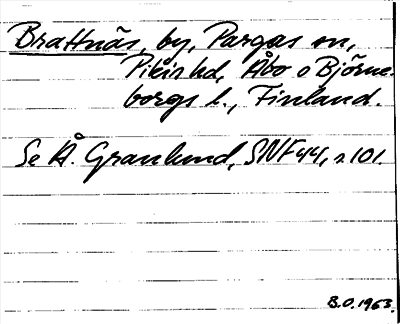 Brattnäs, by, Pargas sn,
Pikis hd, Åbo o Björne-
borgs l., Finland.
Se Å. Granlund, SNF 44, s 101.
B.O. 1963.